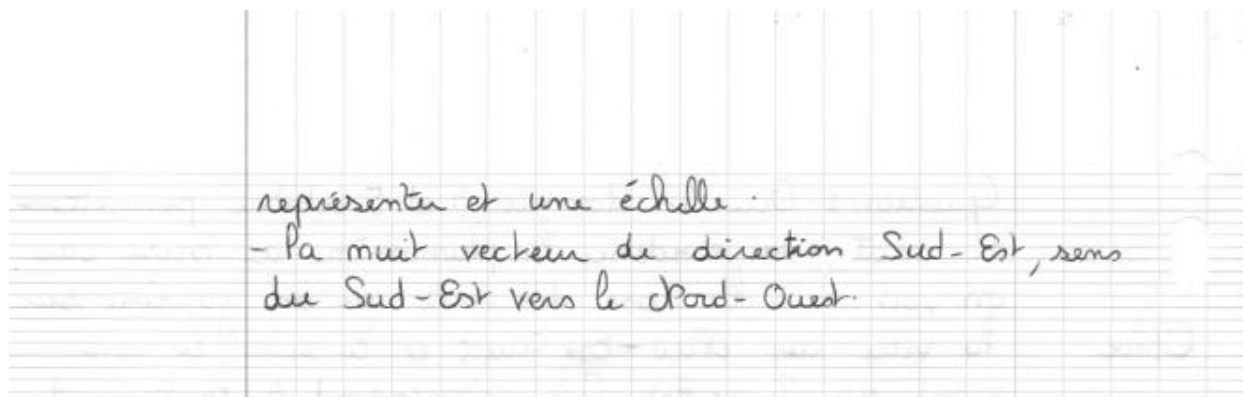 représenter et une échelle.
- la nuit vecteur de direction Sud-Est, sens
du Sud-Est vers le Nord-Ouest.